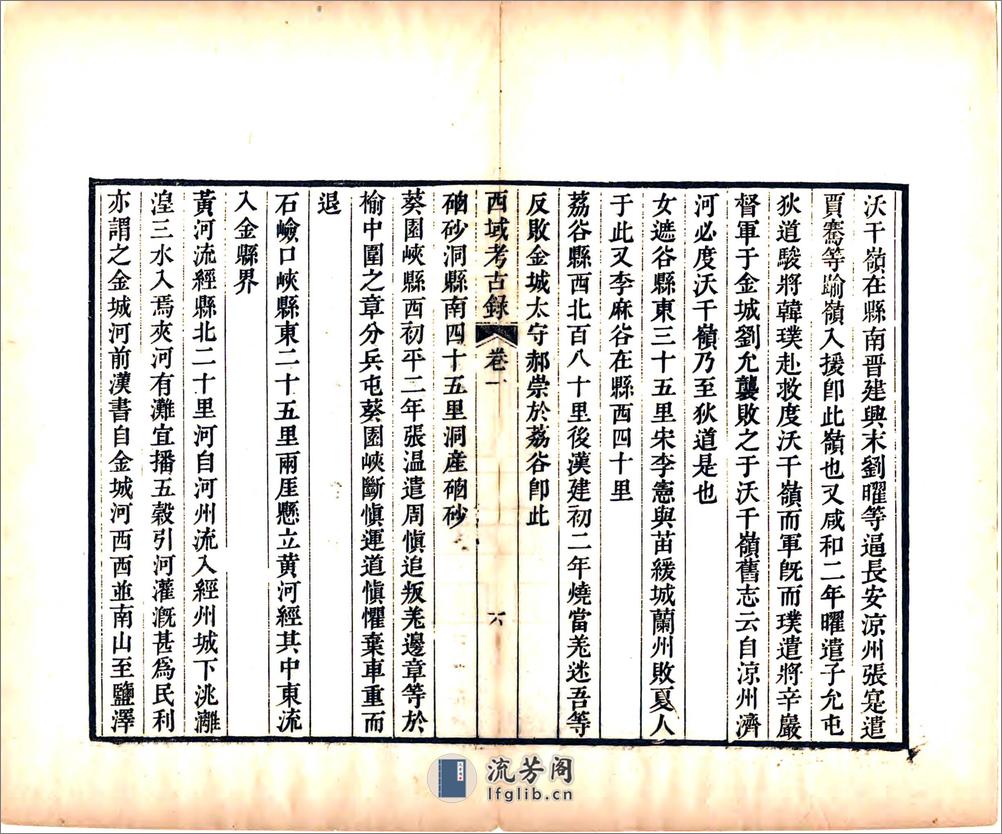 沃干嶺在縣南晉建興末劉曜等逼長安涼州張寔遣
賈騫等踰嶺入援卽此嶺也又咸和二年曜遣子允屯
狄道駿將韓璞赴救度沃千嶺而軍旣而璞遣將辛巖
督軍于金城劉允襲敗之于沃千嶺舊志云自涼州濟
河必度沃千嶺乃至狄道是也
女遮谷縣東三十五里宋李憲與苗緩城蘭州敗夏人
于此又李麻谷在縣西四十里
荔谷縣西北百八十里後漢建初二年燒當羌迷吾等
反敗金城太守郝崇於荔谷卽此
西域考古錄
卷一
六
硇砂洞縣南四十五里洞産硇砂
葵園峽縣西初平二年張温遣周愼追叛羌邊章等於
榆中圍之章分兵屯葵園峽斷愼運道愼懼棄車重而
退
石嶮口峽縣東二十五里兩厓懸立黄河經其中東流
入金縣界
黃河流經縣北二十里河自河州流入經州城下洮灕
湟三水入焉夾河有灘宜播五穀引河灌漑甚爲民利
亦謂之金城河前漢書自金城河西西並南山至鹽澤
流芳阁
lfglib.cn